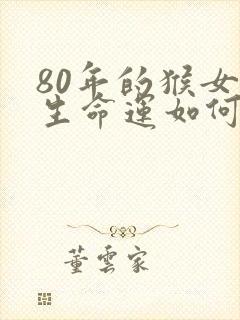 80年的猴女
生命运如何
董云家